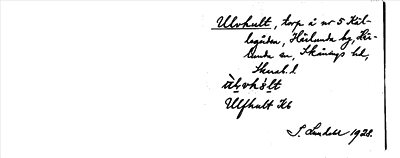 Ulvhult, torp å nr 5 Kil-
legården, Härlunda by, Här-
lunda sn, Skånings hd,
Skarab. l
ùlvhúlt
Ulfhult Kb
S. Lundell 1928.